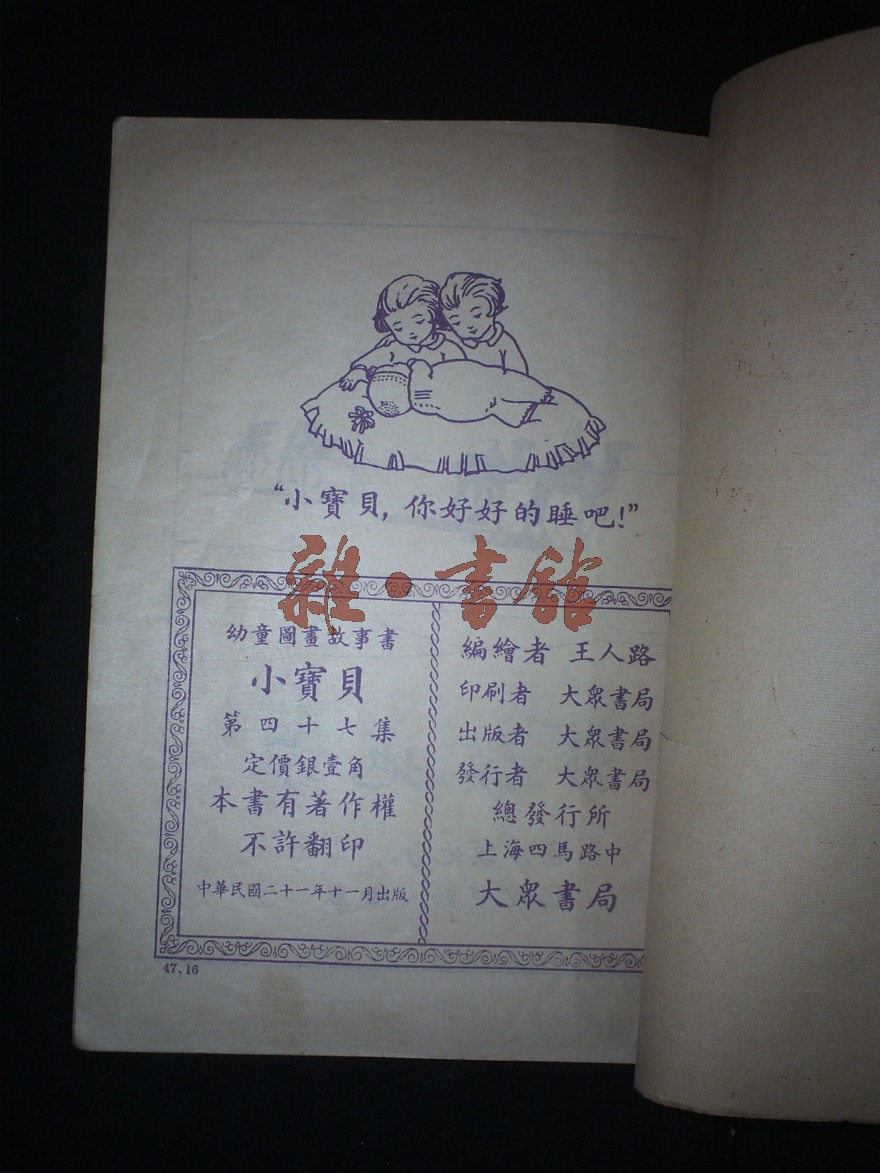 “小寶貝，你好好的睡吧！”
雜·書舘
幼童圖畫故事書
小寶貝
第四十七集
定價銀壹角
本書有著作權
不許翻印
中華民國二十一年十一月出版
編繪者 王人路
印刷者 大眾書局
出版者 大眾書局
發行者 大眾書局
總發行所
上海四馬路中
大眾書局
47,16